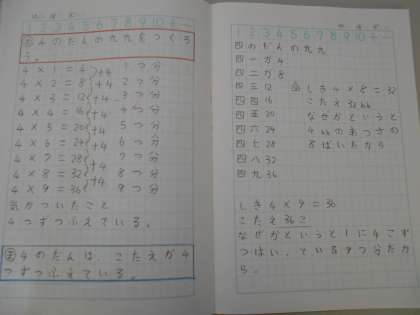 1 2 3 4 5 6 7 8 9 10
め 4のだんの九九をつくろ
う。
4 × 1 = 4 1つ分
4 × 2 = 8 +4 2つ分
4 × 3 = 12 +4 3つ分
4 × 4 = 16 +4 4つ分
4 × 5 = 20 +4 5つ分
4 × 6 = 24 +4 6つ分
4 × 7 = 28 +4 7つ分
4 × 8 = 32 +4 8つ分
4 × 9 = 36 +4 9つ分
気がついたこと
4つずつふえている。
ま 4のだんは、こたえが4
つずつふえている。
1 2 3 4 5 6 7 8 9 10
四のだんの九九
四一が4
四二が8
四三12 しき4×8=32
四四16 こたえ32
四五20 なぜかというと
四六24 4のあつさの
四七28 8ばいだから
四八32
四九36
しき4×9=36
こたえ36こ
なぜかというと1に4こず
つはいっている9つ分だか
ら。